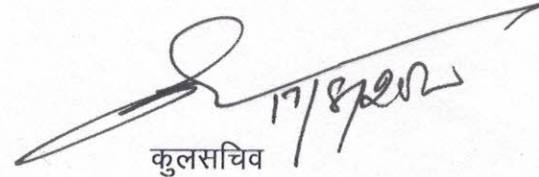 17/8/2020
कुलसचिव